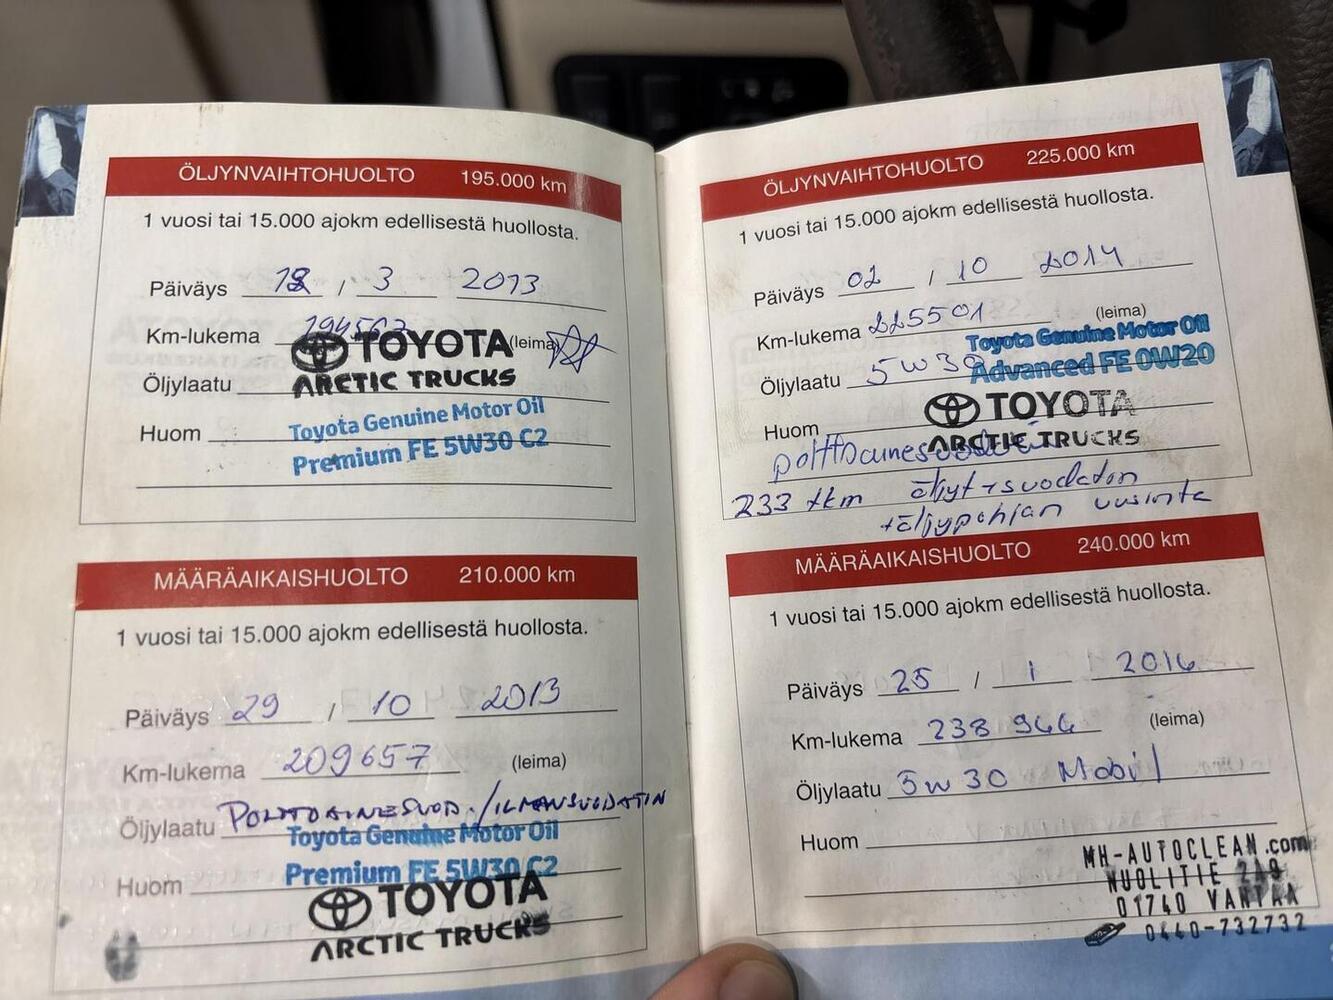 ÖLJYNVAIHTOHUOLTO 195.000 km
1 vuosi tai 15.000 ajokm edellisestä huollosta.
Päiväys 18 / 3 2013
Km-lukema (leima)
TOYOTA
Öljylaatu ARCTIC TRUCKS
Huom Toyota Genuine Motor Oil
Premium FE 5W30 C2
MÄÄRÄAIKAISHUOLTO 210.000 km
1 vuosi tai 15.000 ajokm edellisestä huollosta.
Päiväys 29 / 10 2013
Km-lukema 209657 (leima)
Öljylaatu POLTTOAINESUOD. / ILMANSUODATIN
Toyota Genuine Motor Oil
Huom Premium FE 5W30 C2
TOYOTA
ARCTIC TRUCKS
ÖLJYNVAIHTOHUOLTO 225.000 km
1 vuosi tai 15.000 ajokm edellisestä huollosta.
Päiväys 02 / 10 2014
Km-lukema 225501 (leima)
Toyota Genuine Motor Oil
Öljylaatu 5W30 Advanced FE 0W20
TOYOTA
Huom ARCTIC TRUCKS
233 tkm öljyt + suodatin
+ öljypohjan uusinta
MÄÄRÄAIKAISHUOLTO 240.000 km
1 vuosi tai 15.000 ajokm edellisestä huollosta.
Päiväys 25 / 1 2016
Km-lukema 238 966 (leima)
Öljylaatu 5w30 Mobil
Huom
MH-AUTOCLEAN.com
NUOLITIE
01740 VANTAA
0440-732732